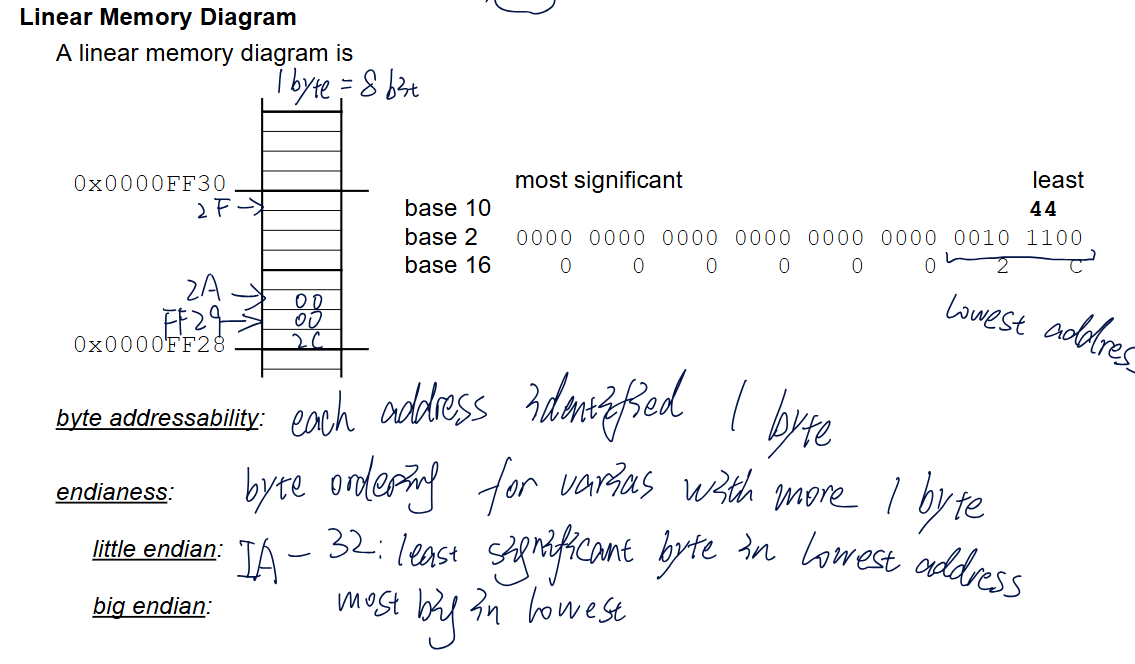 Linear Memory Diagram
A linear memory diagram is
1 byte = 8 bit
0x0000FF30
2F
most significant least
base 10 44
base 2 0000 0000 0000 0000 0000 0000 0010 1100
base 16 0 0 0 0 0 0 2 C
2A 00
FF29 00
0x0000FF28 2C
lowest addres
byte addressability: each address identified 1 byte
endianess: byte ordering for varias with more 1 byte
little endian: IA - 32: least significant byte in lowest address
big endian: most big in lowest